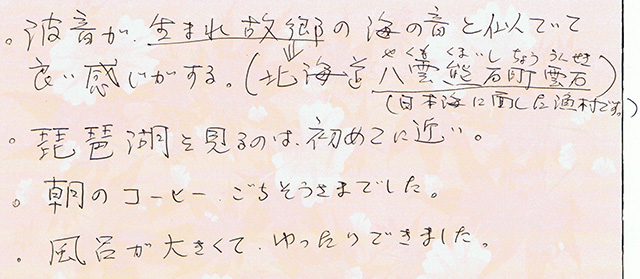 。波音が、生まれ故郷の海の音と似ていて
良い感じがする。(北海道八雲熊石町雲石)
やくも くまいし ちょう うんせき
(日本海に面した漁村です。)
・琵琶湖を見るのは、初めてに近い。
。朝のコーヒー、ごちそうさまでした。
・風呂が大きくて、ゆったりできました。